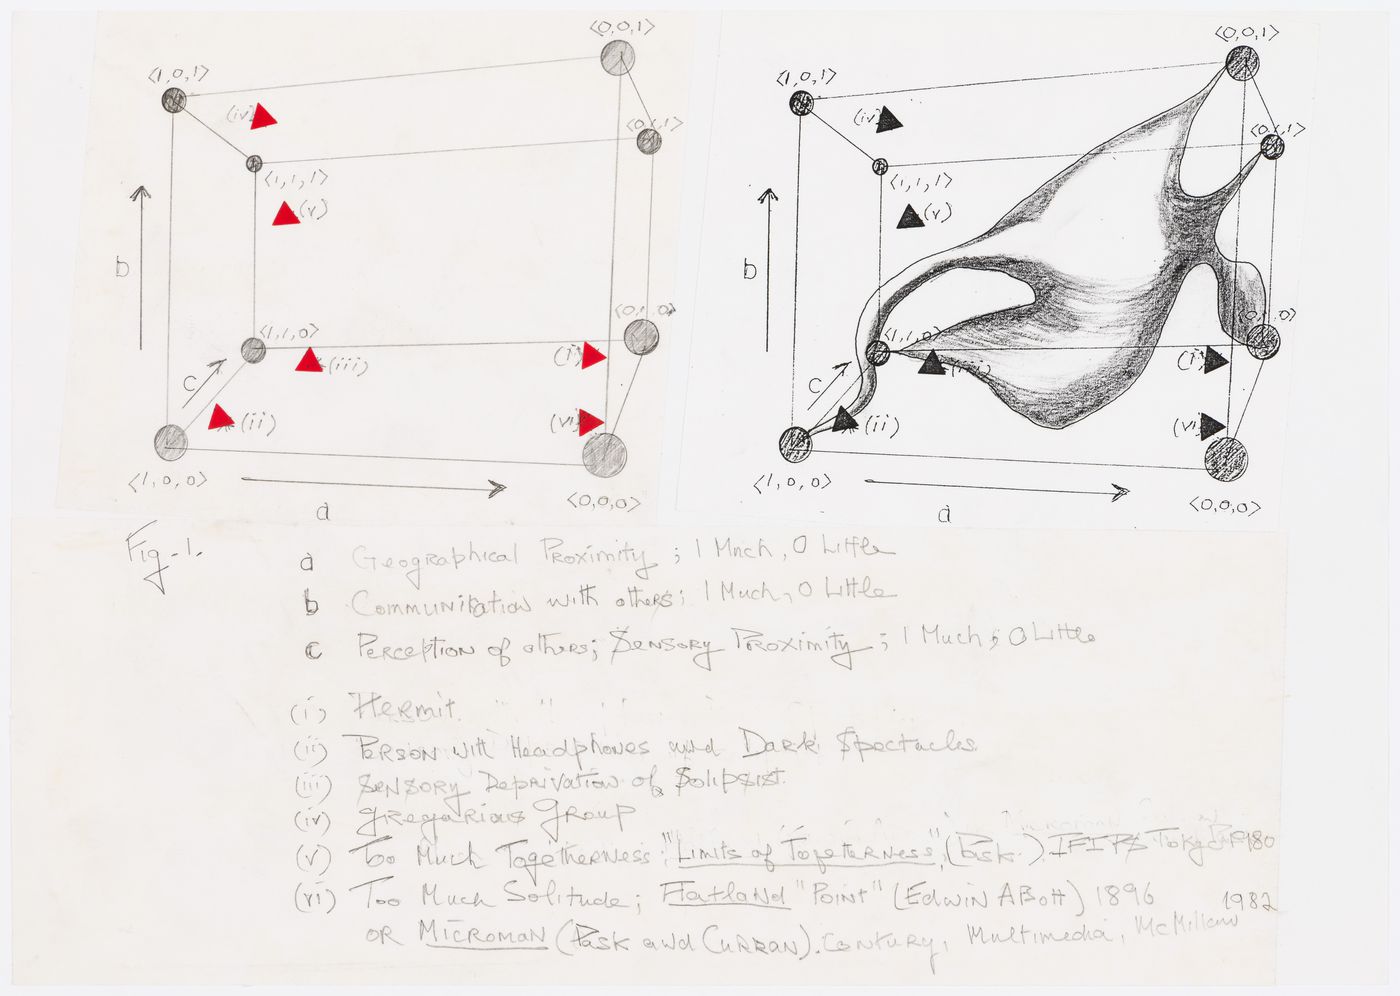 ⟨0,0,1⟩
⟨1,0,1⟩
(iv)
⟨0,1,1⟩
⟨1,1,1⟩
(v)
b
⟨0,1,0⟩
⟨1,1,0⟩
(i)
(iii)
c
(ii)
(vi)
⟨1,0,0⟩
⟨0,0,0⟩
a
⟨0,0,1⟩
⟨1,0,1⟩
(iv)
⟨0,1,1⟩
⟨1,1,1⟩
(v)
b
⟨0,1,0⟩
⟨1,1,0⟩
(i)
(iii)
c
(ii)
(vi)
⟨1,0,0⟩
⟨0,0,0⟩
a
Fig-1.
a Geographical Proximity ; 1 Much, 0 Little
b Communication with others; 1 Much, 0 Little
c Perception of others; Sensory Proximity ; 1 Much ; 0 Little
(i) Hermit.
(ii) Person with Headphones and Dark Spectacles
(iii) Sensory Deprivation of Solipsist.
(iv) Gregarious Group
(v) Too Much Togetherness: "Limits of Togetherness", (Pask) IFIPS Tokyo 1980
(vi) Too Much Solitude; Flatland "Point" (Edwin Abott) 1896 1982
or Microman (Pask and Curran). Century, Multimedia, McMillan